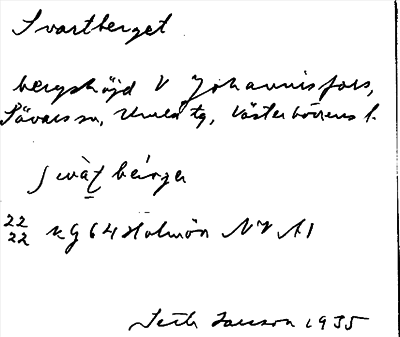 Svartberget
bergshöjd V Johannisfors,
Sävars sn, Umeå tg, Västerbottens l.
svàt bérger
22
22 kg 64 Holmön NV A1
Seth Jansson 1935